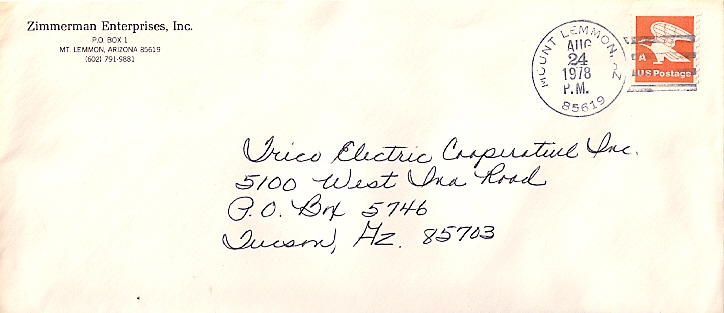 Zimmerman Enterprises, Inc.
P.O. BOX 1
MT. LEMMON, ARIZONA 85619
(602) 791-9881
MOUNT LEMMON, AZ
AUG
24
1978
P.M.
85619
A
US Postage
Trico Electric Cooperative Inc.
5100 West Ina Road
P.O. Box 5746
Tucson, Az. 85703